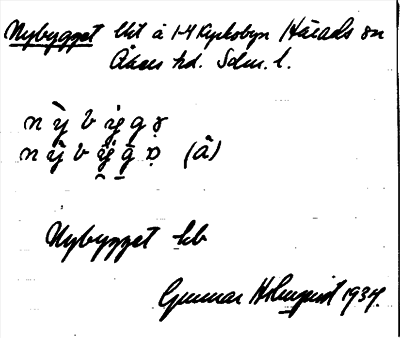 Nybygget lht å 1-4 Kyrkobyn Härads sn
Åkers hd. Sdm. l.
n ỳ b ig g
n ỳ b (å)
Nybygget kb
Gunnar Holmquist 1934.